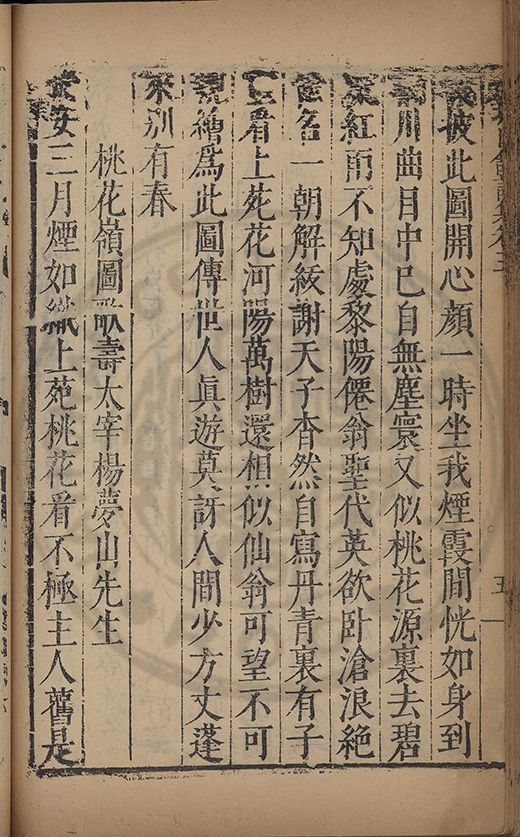 卷三
五
披此圖開心顏一時坐我煙霞間恍如身到
川曲目中已自無塵寰又似桃花源裏去碧
紅雨不知處黎陽僊翁聖代英欲卧滄浪絶
名一朝解紱謝天子杳然自寫丹青裏有子
看上苑花河陽萬樹還相似仙翁可望不可
繪爲此圖傳世人眞遊莫訝人間少方丈蓬
來别有春
桃花嶺圖歌壽太宰楊夢山先生
安三月煙如織上苑桃花看不極主人舊是